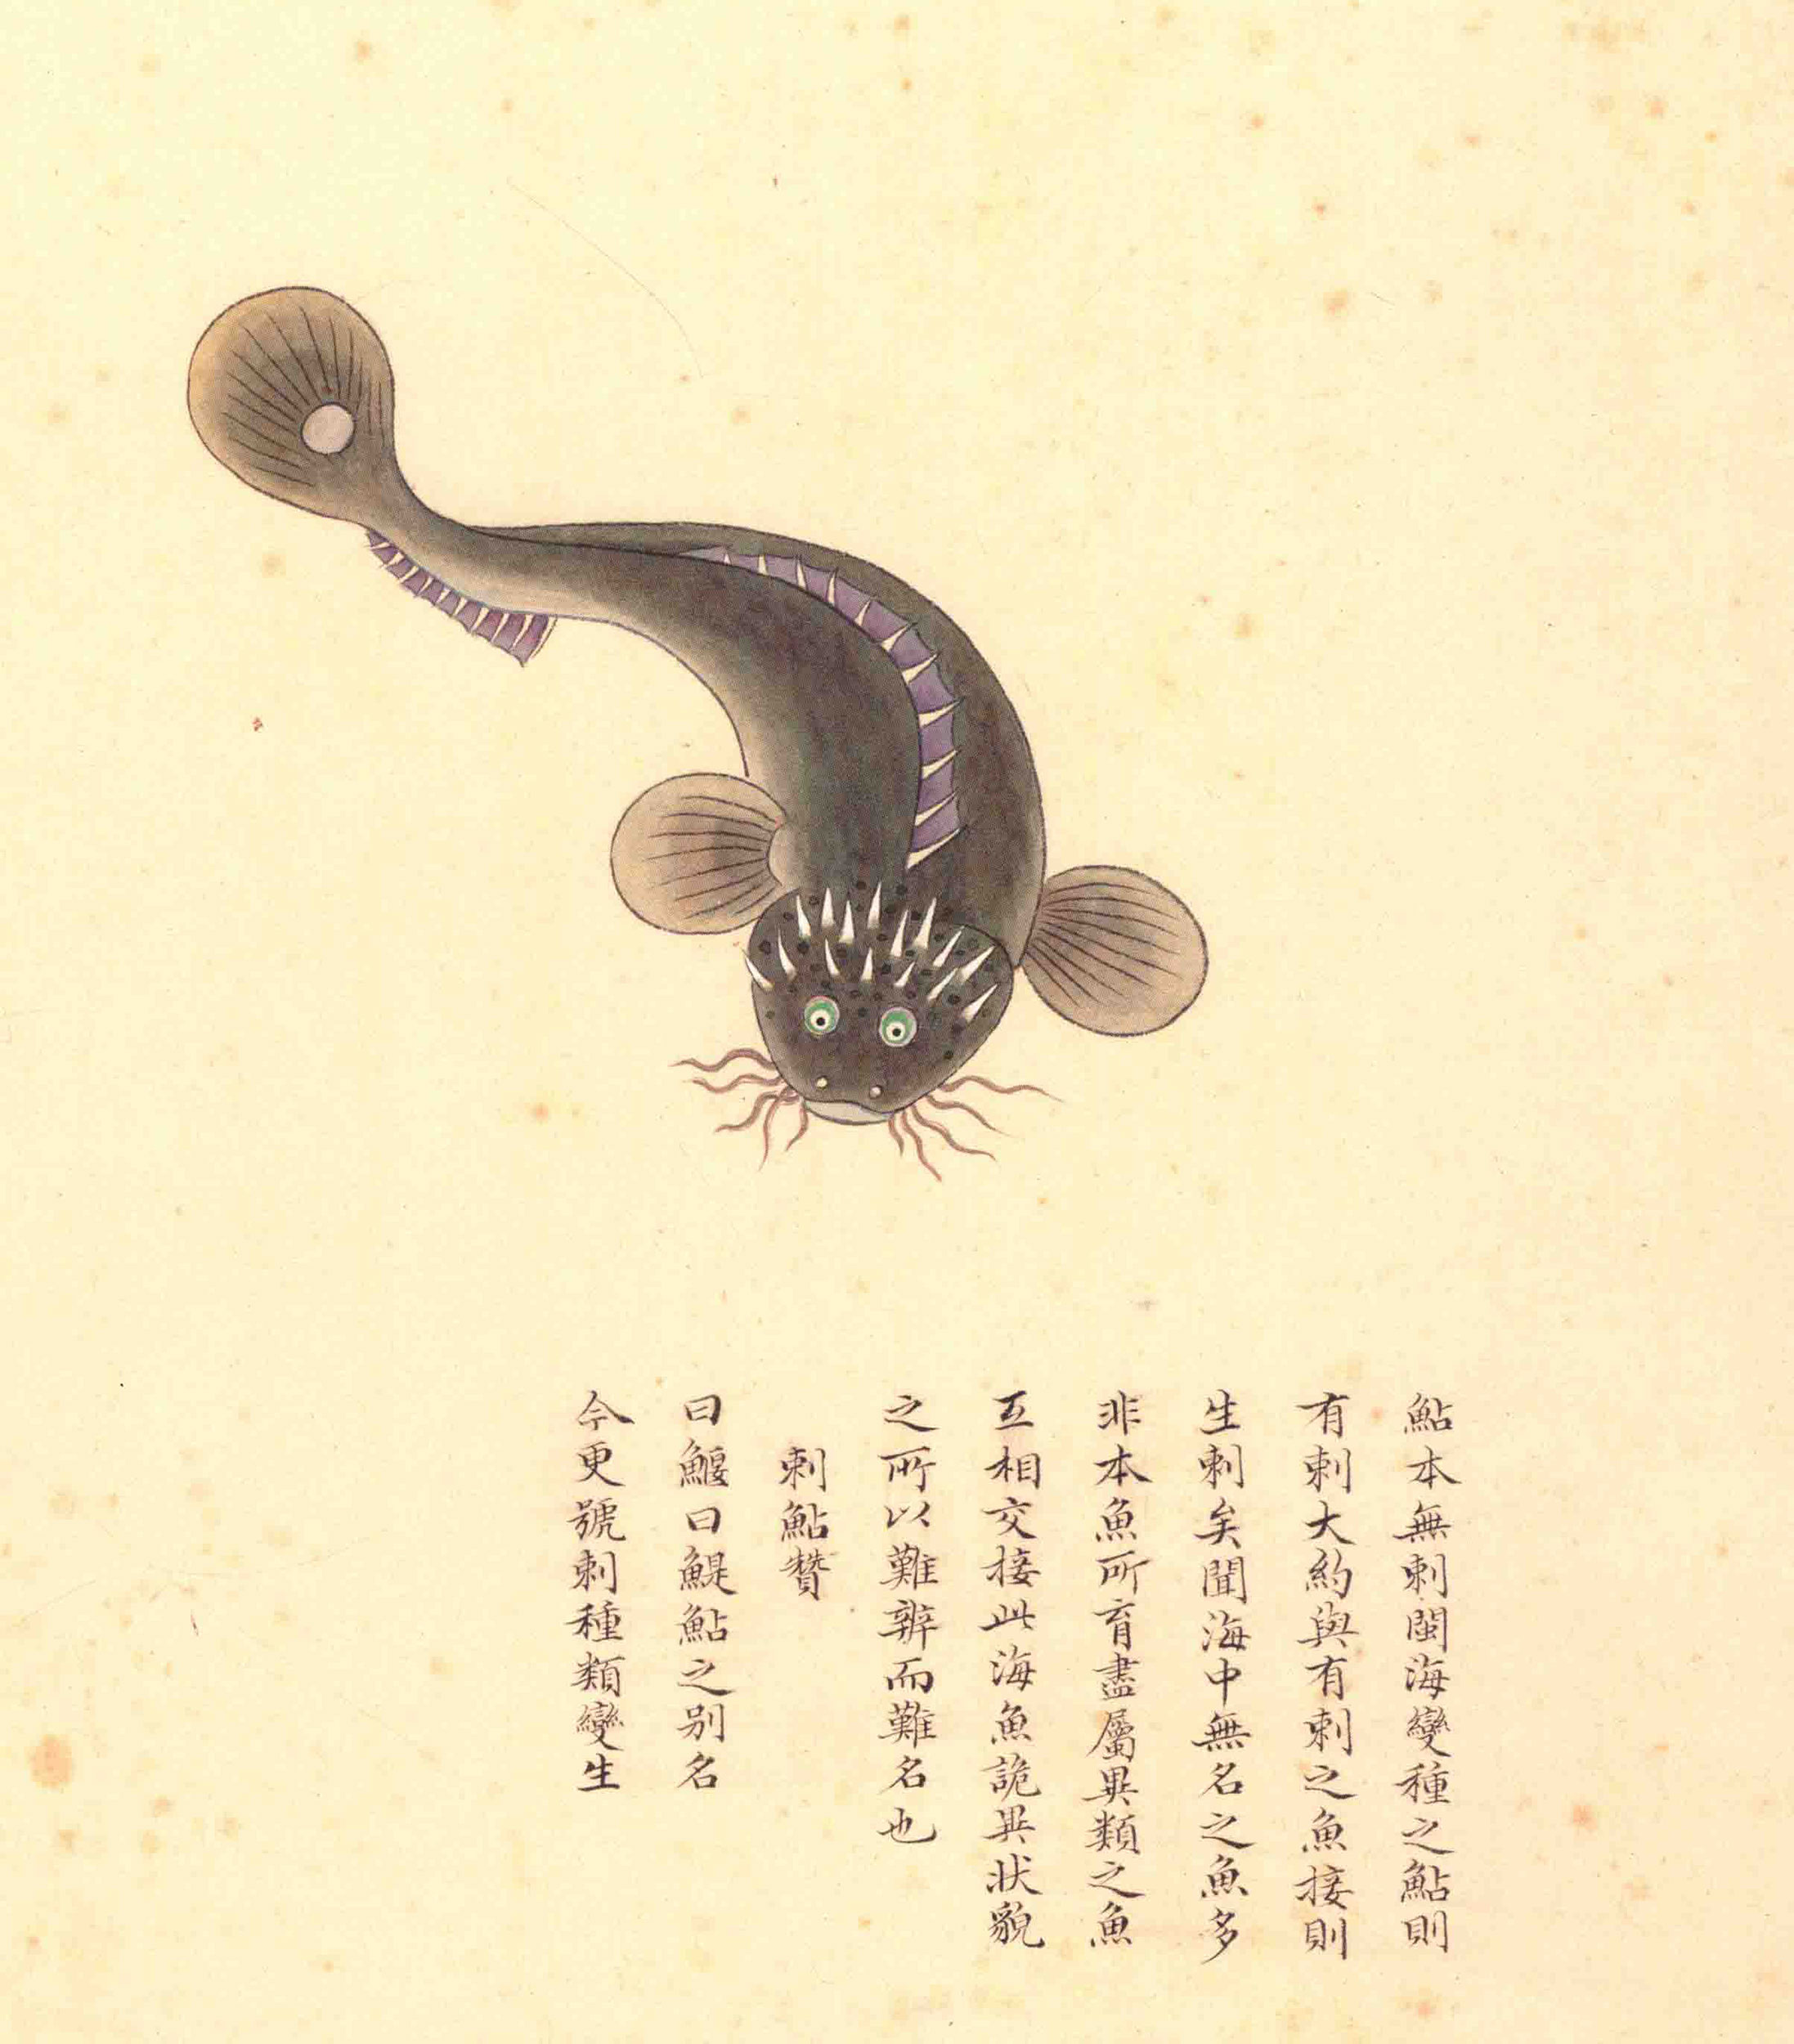 鮎本無刺閩海變種之鮎則
有刺大約與有刺之魚接則
生刺矣聞海中無名之魚多
非本魚所育盡屬異類之魚
互相交接此海魚詭異狀貌
之所以難辨而難名也
刺鮎贊
曰鰋曰鯷鮎之别名
今更號刺種類變生